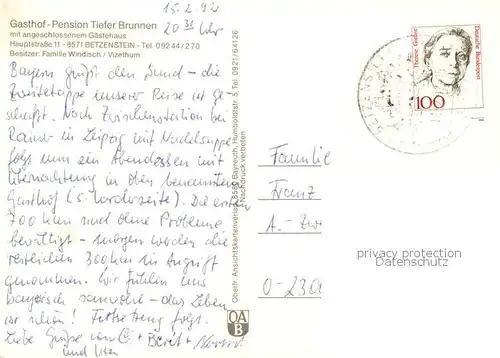 15.2.92
20 31 Uhr
Gasthof-Pension Tiefer Brunnen
mit angeschlossenem Gästehaus
Hauptstraße 11 - 8571 BETZENSTEIN - Tel. 09244/270
Besitzer: Familie Windisch / Vizethum
Bayern grüßt den Sund – die
Zweitetappe unserer Reise ist ge-
schafft. Nach Zwischenstation bei
in Leipzig mit Nudelsuppe
folgt nun ein Abendessen mit
Übernachtung in oben benanntem
Gasthof (s. Vorderseite). Die ersten
700 km sind ohne Probleme
bewältigt – morgen werden die
restlichen 300 km in Angriff
genommen. Wir fühlen uns
bayrisch sauwohl – das Leben
ist schön! Fortsetzung folgt.
Liebe Grüße von + Berit +
und
Oberfr. Ansichtskartenverlag, 8580 Bayreuth, Humboldtstr. 5, Tel. 0921/64126
Nachdruck verboten
OA
B
BETZENSTEIN
Therese Giehse
Deutsche Bundespost
100
Familie
Franz
A.-Zw
O-230
privacy protection
Datenschutz